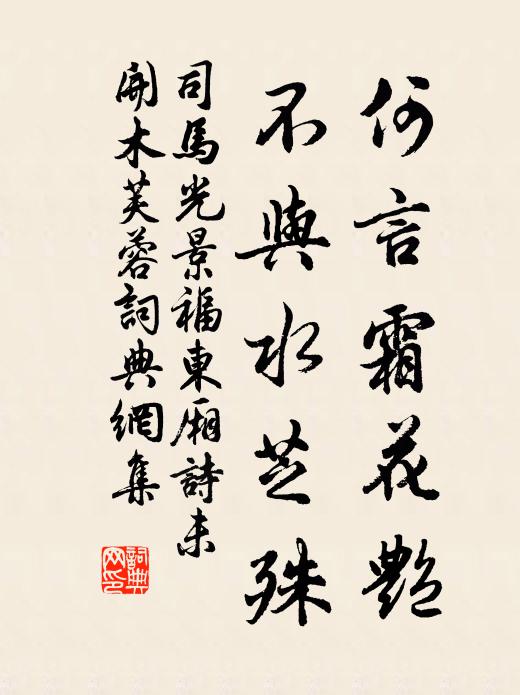 何言霜花艷
不與水芝殊
司馬光景福東廂詩未
開木芙蓉詞典網集
詞典
网印